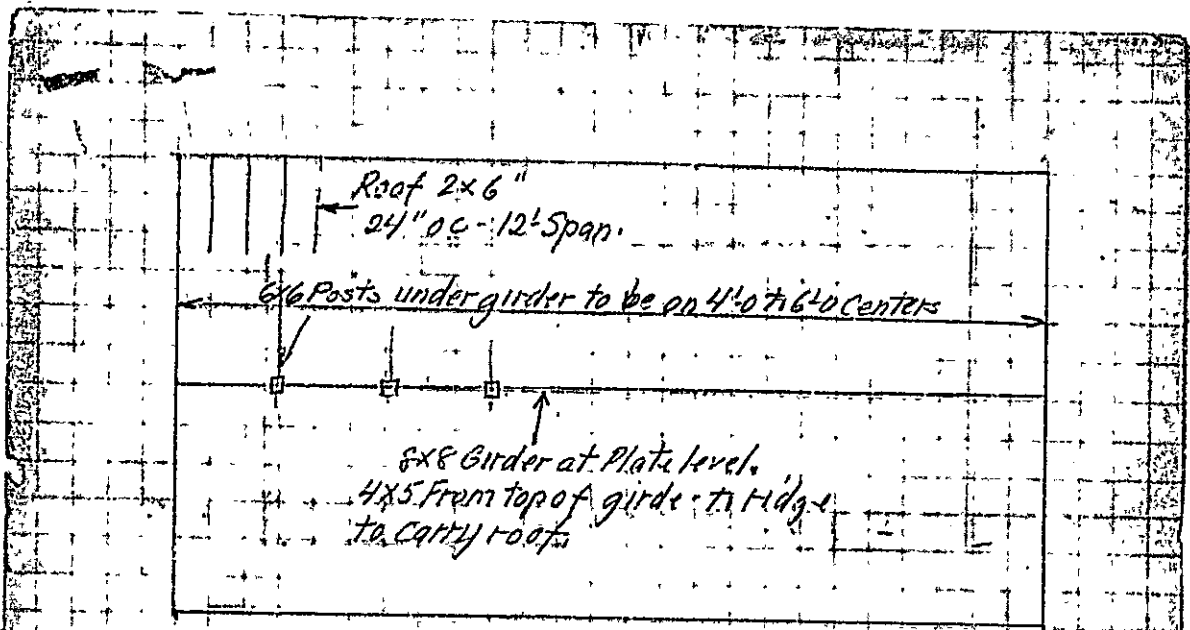 Roof 2x6"
24" oc - 12' Span.
6x6 Posts under girder to be on 4'-0 to 6'-0 Centers
8x8 Girder at Plate level.
4x5 From top of girder to ridge
to carry roof.